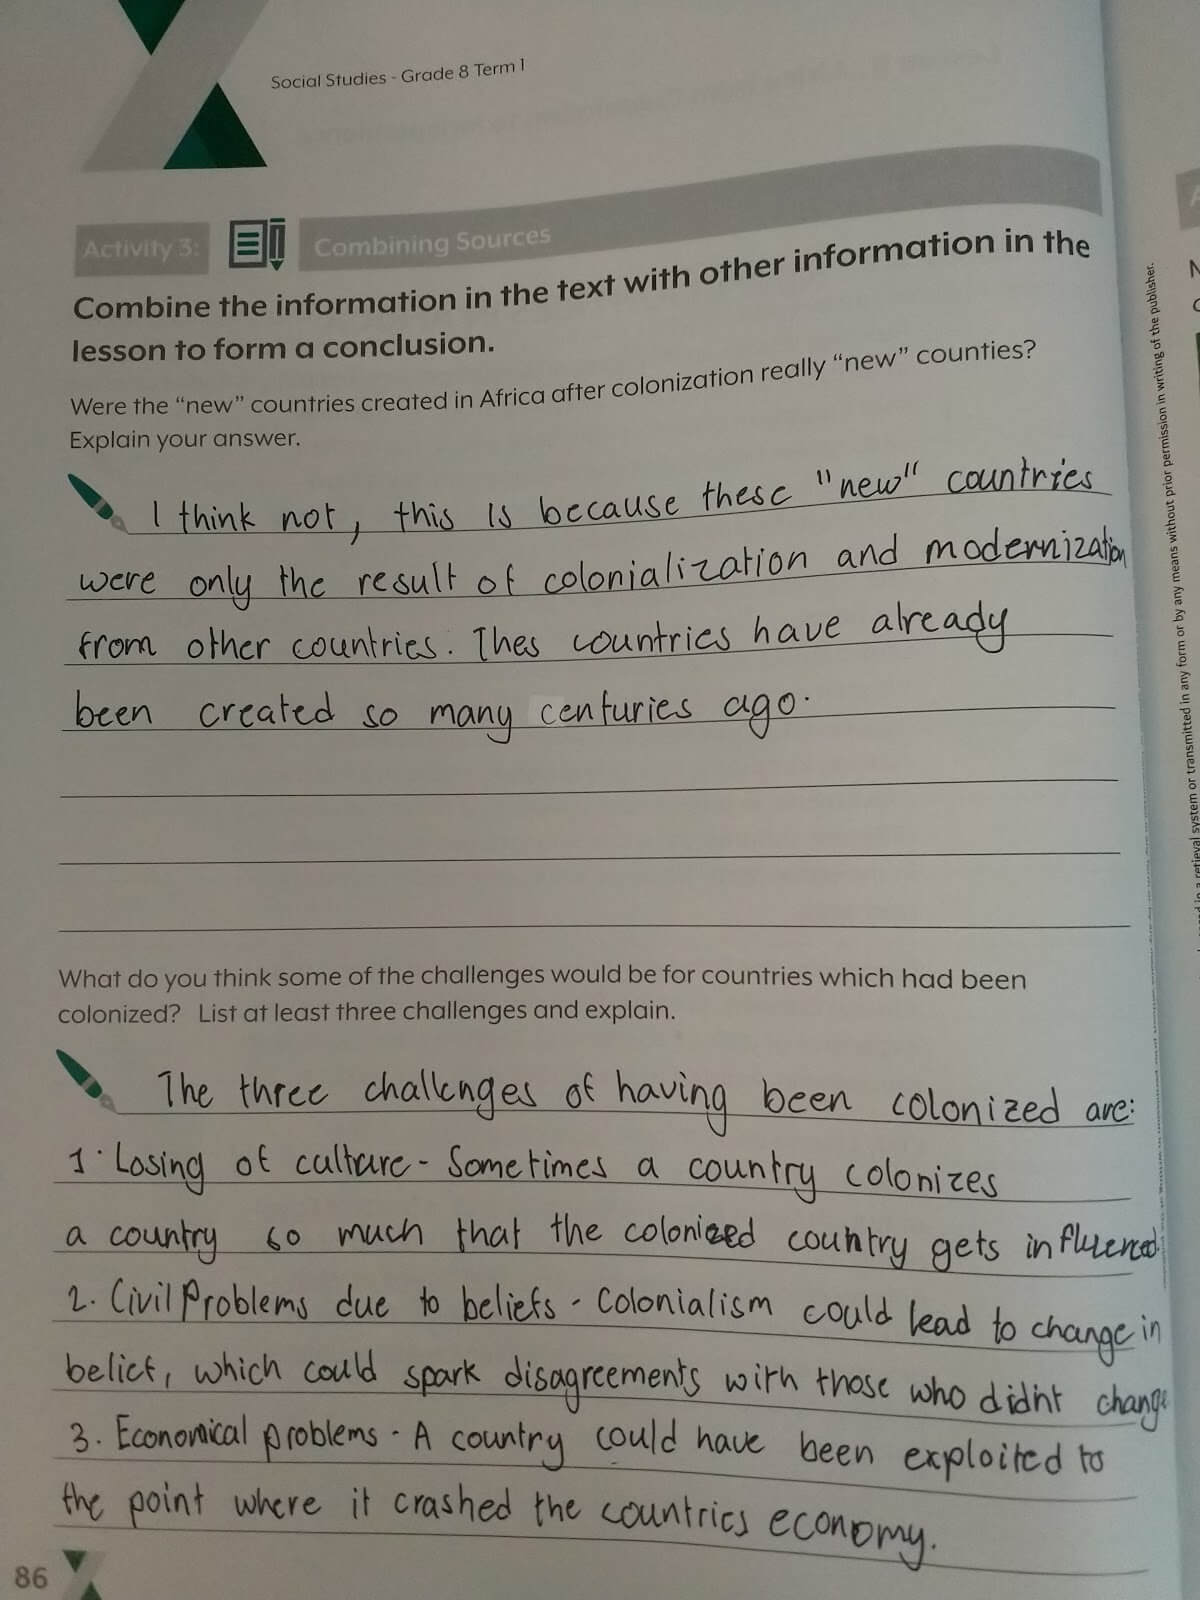 Social Studies - Grade 8 Term 1
Activity 3:
Combining Sources
Combine the information in the text with other information in the
lesson to form a conclusion.
Were the “new” countries created in Africa after colonization really “new” counties?
Explain your answer.
I think not, this is because these "new" countries
were only the result of colonialization and modernization
from other countries. Thes countries have already
been created so many centuries ago.
What do you think some of the challenges would be for countries which had been
colonized? List at least three challenges and explain.
The three challenges of having been colonized are:
1. Losing of culture - Sometimes a country colonizes
a country so much that the colonized country gets influenced.
2. Civil Problems due to beliefs - Colonialism could lead to change in
belief, which could spark disagreements with those who didn't change
3. Economical problems - A country could have been exploited to
the point where it crashed the countries economy.
86
system or transmitted in any form or by any means without prior permission in writing of the publisher.